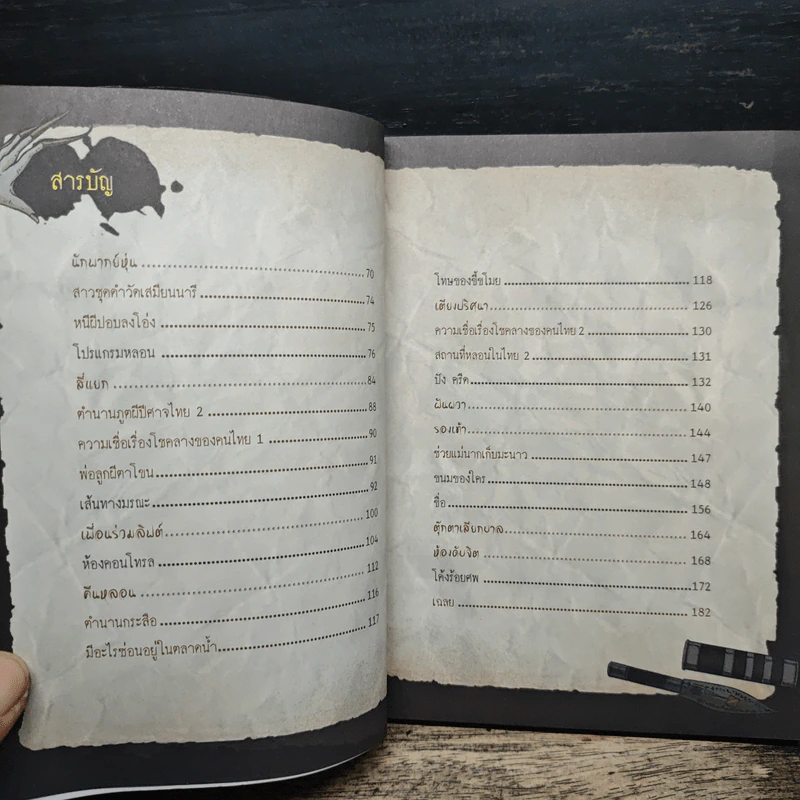 สารบัญ
นักพากย์หุ่น 70
สาวชุดดำวัดเสมียนนารี 74
หนีผีปอบลงโอ่ง 75
โปรแกรมหลอน 76
สี่แยก 84
ตำนานภูตผีปีศาจไทย 2 88
ความเชื่อเรื่องโชคลางของคนไทย 1 90
พ่อลูกผีตาโขน 91
เส้นทางมรณะ 92
เพื่อนร่วมลิฟต์ 100
ห้องคอนโทรล 104
คืนหลอน 112
ตำนานกระสือ 116
มีอะไรซ่อนอยู่ในตลาดน้ำ 117
โทษของขี้ขโมย 118
เตียงปริศนา 126
ความเชื่อเรื่องโชคลางของคนไทย 2 130
สถานที่หลอนในไทย 2 131
ปัง ครืด 132
ฝันผวา 140
รองเท้า 144
ช่วยแม่นากเก็บมะนาว 147
ขนมของใคร 148
ชื่อ 156
ตุ๊กตาเสียกบาล 164
ห้องดับจิต 168
โค้งร้อยศพ 172
เฉลย 182